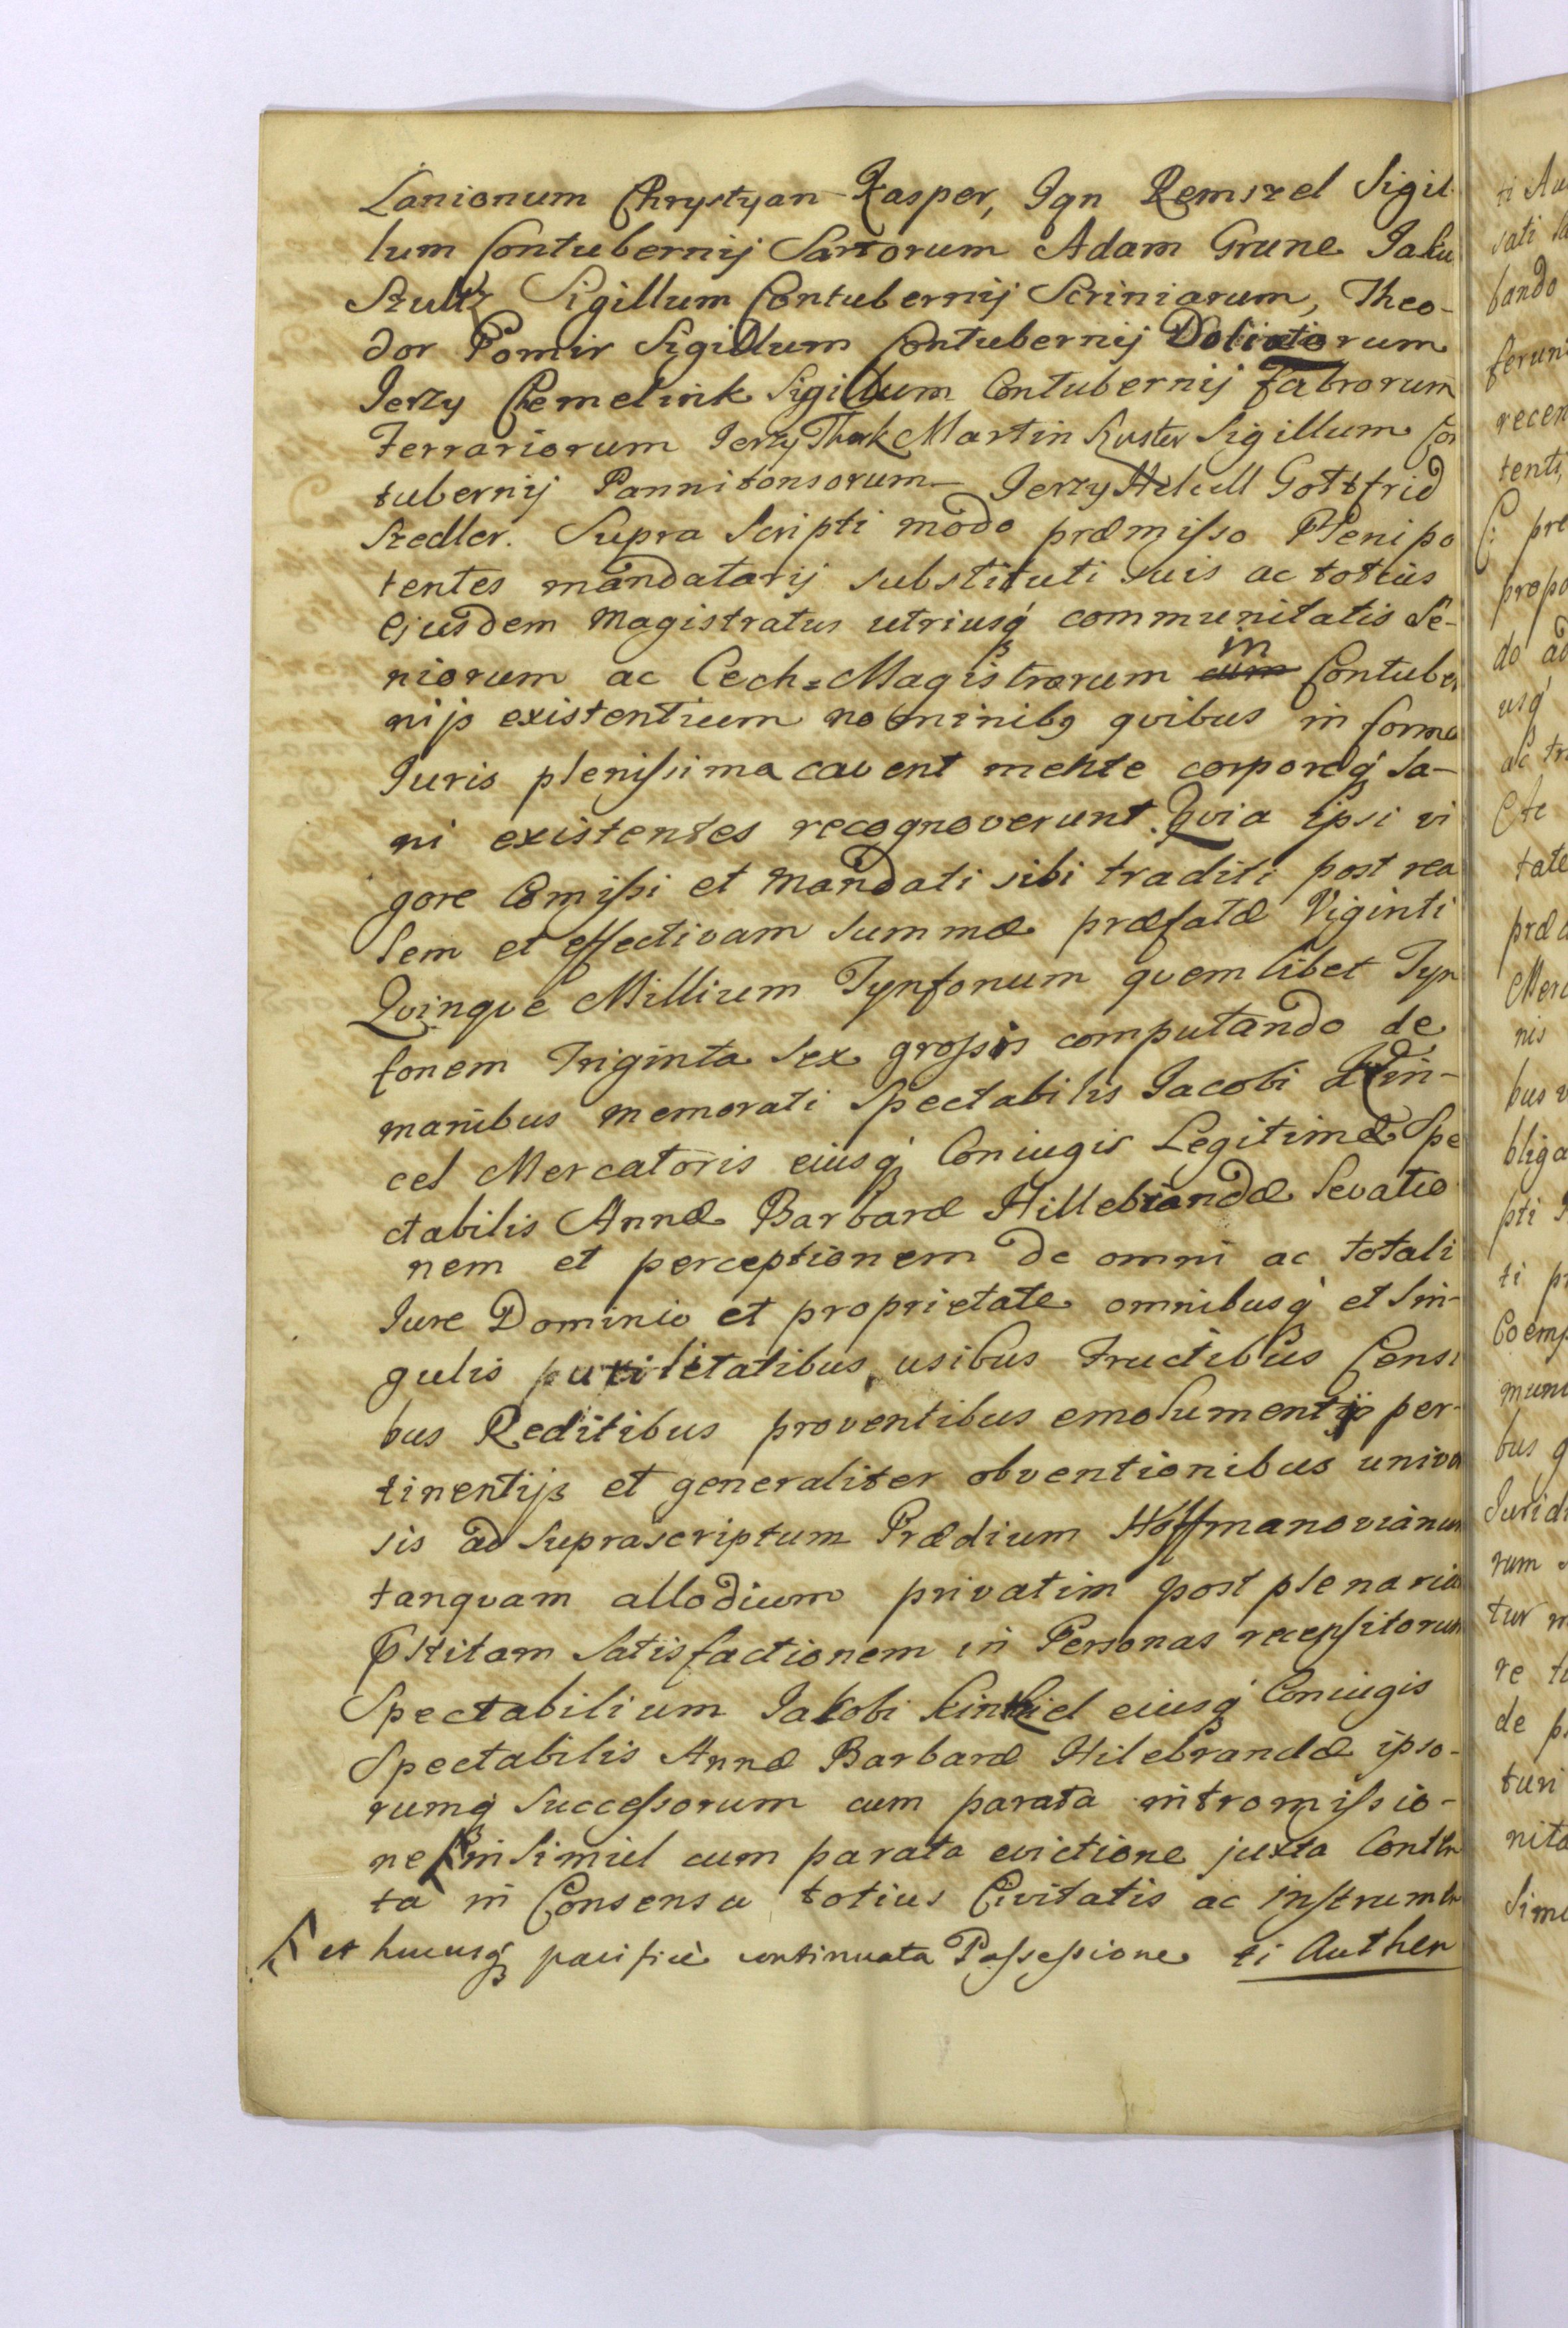 Lanionum Chrystyan Kasper, Ign Remszel Sigil-
lum Contubernij Sartorum Adam Grune Jaku
Szultz Sigillum Contubernij Scriniarum, Theo-
dor Pomir Sigillum Contubernij Doliatorum
Jerzy Chemelink Sigillum Contubernij Fabrorum
Ferrariorum Jerzy Martin Kuster Sigillum Con
tubernij Pannitonsorum Jerzy Gottfrid
Szedler. Supra Scripti modo præmisso Plenipo
tentes mandatarij substituti suis ac totius
Ejusdem Magistratus utriusq́ communitatis Se-
niorum ac Cech=Magistrorum cum in Contuber
nijs existentium nominibq quibus in forma
Juris plenissima cavent mente corporeq́ Sa-
ni existentes recognoverunt. Qvia ipsi vi
gore Comissi et Mandati sibi traditi post rea
lem et effectivam Summæ præfatæ Viginti
Qvinqve Millium Tynfonum qvemlibet Tyn
fonem Triginta Sex grossis computando de
manibus memorati Spectabilis Jacobi Kin-
cel Mercatoris eiusq́ Coniugis Legitimæ Spe
ctabilis Annæ Barbaræ Hillebrandæ levatio
nem et perceptionem de omni ac totali
Jure Dominio et proprietate omnibusq́ et Sin-
gulis utilitatibus usibus Fructibus Censi
bus Reditibus proventibus emolumentijs per-
tinentijs et generaliter obventionibus univer
sis ad Suprascriptum Prædium Hoffmanovianum
tanqvam allodium privatim post plenariam
Extitam Satisfactionem in Personas recepsitorum
Spectabilium Jakobi Kinkiel eiusq́ Coniugis
Spectabilis Annæ Barbaræ Hilebrandæ ipso-
rumq́ Successorum cum parata intromissio-
ne insimul cum parata evictione juxta Conten
ta in Consensu totius Civitatis ac instrumen
et hucusq́ pacifice continuata Possessione ti Authen